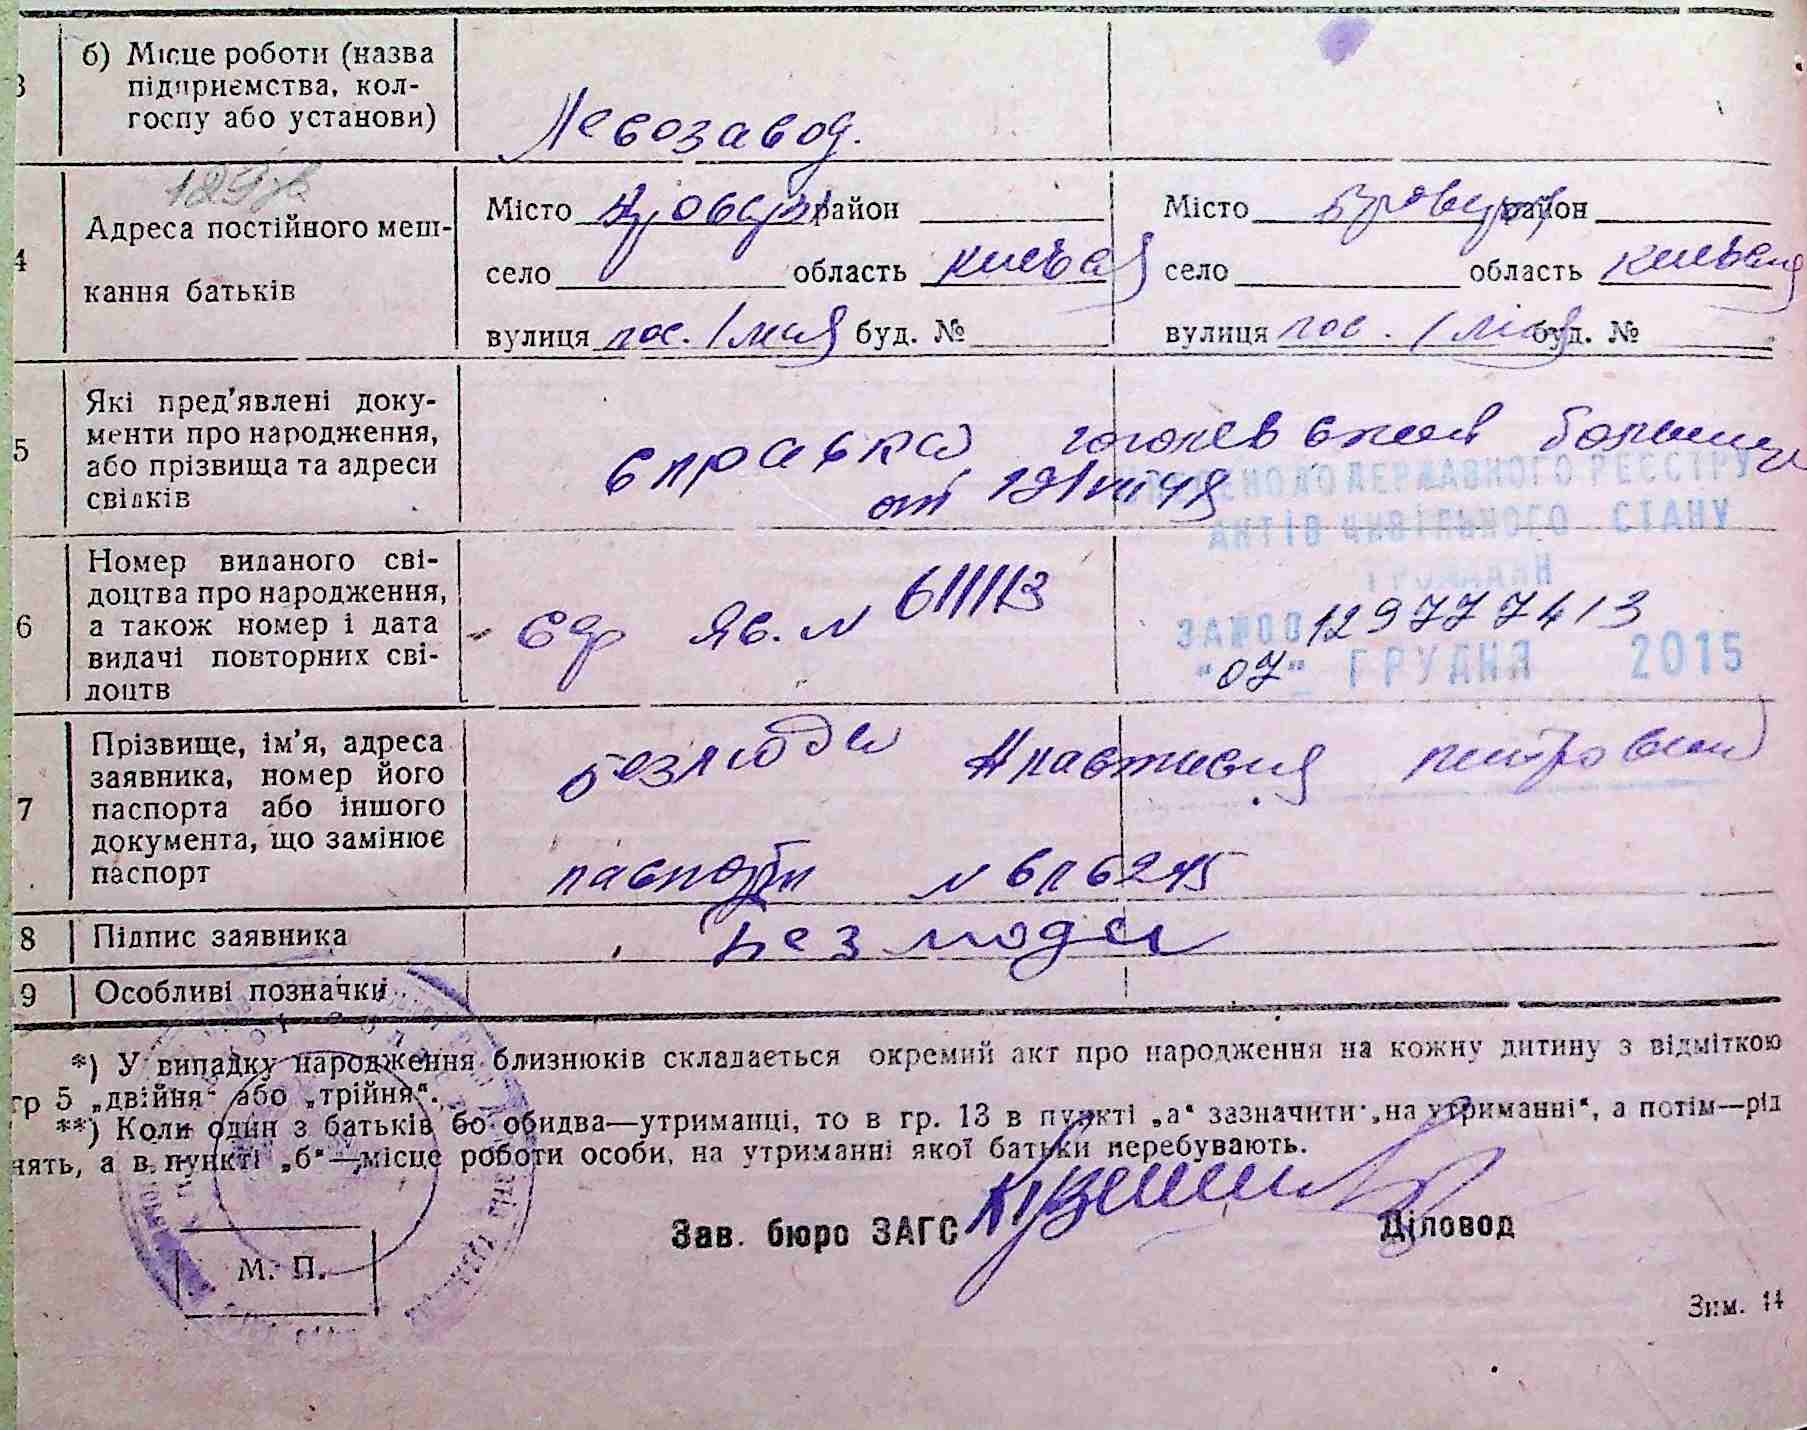 3 б) Місце роботи (назва
підприємства, кол-
госпу або установи)
завод.
4 Адреса постійного меш-
кання батьків
Місто Бровари район
Місто Бровари район
село область Київская
село область Київская
вулиця пос. 1 мая буд. №
вулиця пос. 1 мая буд. №
5 Які пред'явлені доку-
менти про народження,
або прізвища та адреси
свідків
справка больниці
от
ДЕРЖАВНОГО РЕЄСТРУ
АКТІВ ЦИВІЛЬНОГО СТАНУ
ГРОМАДЯН
6 Номер виданого сві-
доцтва про народження,
а також номер і дата
видачі повторних сві-
доцтв
№ 611113
12977413
"07" ГРУДНЯ 2015
7 Прізвище, ім'я, адреса
заявника, номер його
паспорта або іншого
документа, що замінює
паспорт
Безлюда Анастасия Петровна
паспорт №
8 Підпис заявника
Безлюда
9 Особливі позначки
*) У випадку народження близнюків складається окремий акт про народження на кожну дитину з відміткою
гр 5 „двійня“ або „трійня“.
**) Коли один з батьків бо обидва—утриманці, то в гр. 13 в пункті „а“ зазначити „на утриманні“, а потім—рід
нять, а в пункті „б“—місце роботи особи, на утриманні якої батьки перебувають.
Зав. бюро ЗАГС
Діловод
М. П.
Зим. 14